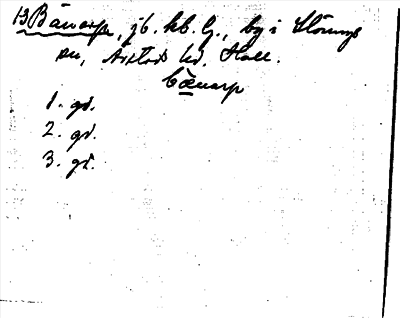 13 Bänarp, jb. kb. G., by i Slöinge
sn, Årstads hd. Hall.
bänarp
1. gd.
2. gd.
3. gd.